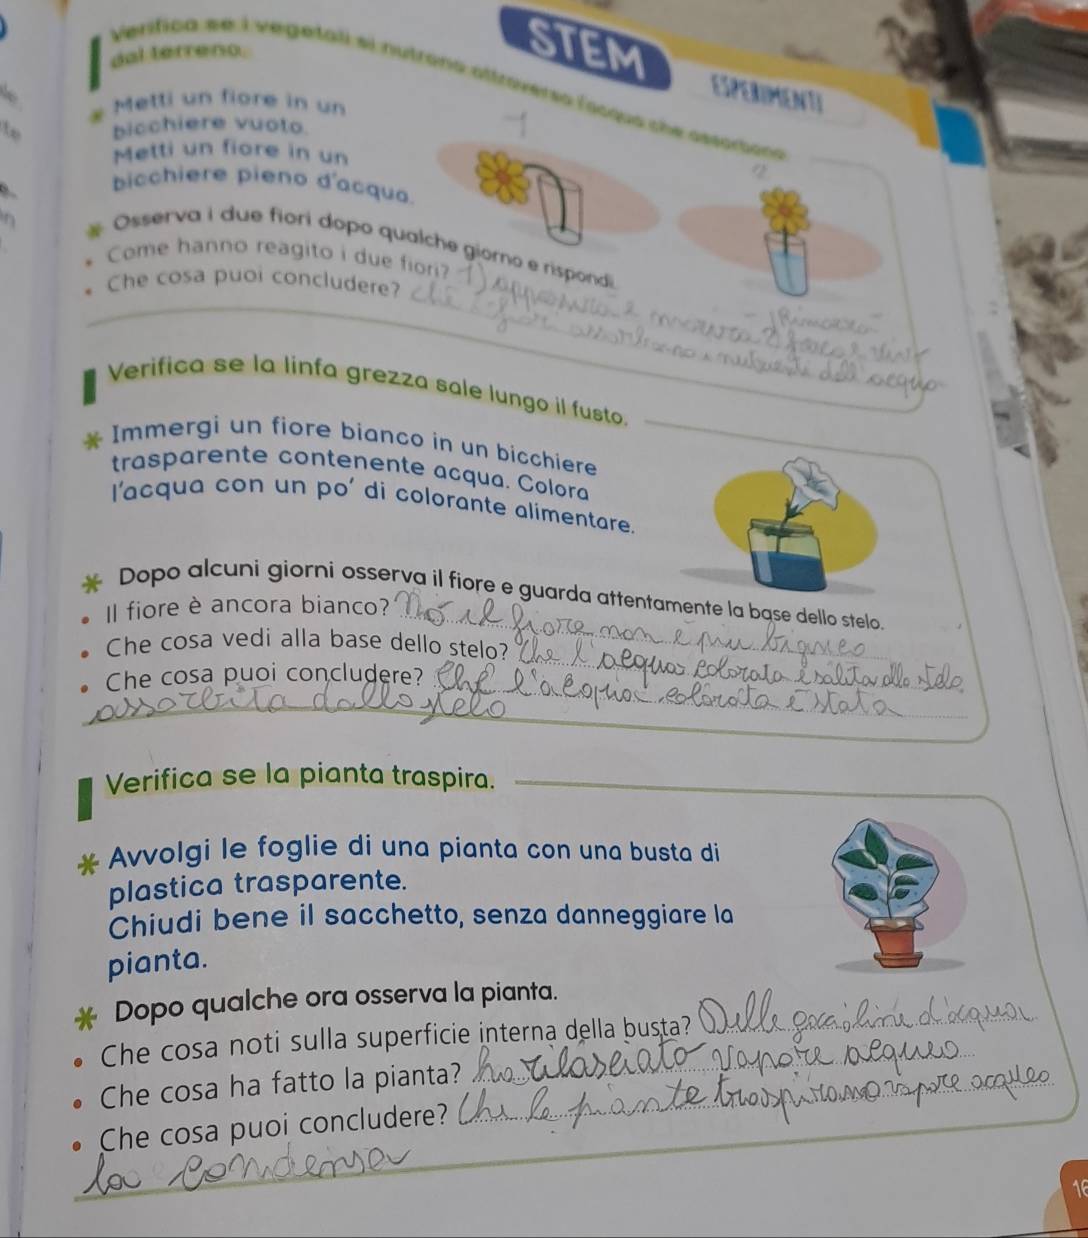 STEM
ESPERIMENTI
Verifica se i vegetali si nutrono attraverso l'acqua che assorbono
dal terreno.
Metti un fiore in un
bicchiere vuoto.
Metti un fiore in un
bicchiere pieno d'acqua.
1
2
Osserva i due fiori dopo qualche giorno e rispondi.
Come hanno reagito i due fiori? 1)
Che cosa puoi concludere? che i fiori assorbono i nutrienti dell'acqua
Verifica se la linfa grezza sale lungo il fusto.
Immergi un fiore bianco in un bicchiere
trasparente contenente acqua. Colora
l'acqua con un po' di colorante alimentare.
Dopo alcuni giorni osserva il fiore e guarda attentamente la base dello stelo.
Il fiore è ancora bianco? No il fiore non è più
Che cosa vedi alla base dello stelo? che l'acqua colorata è salita allo stelo
Che cosa puoi concludere? Che l'acqua colorata è stata
assorbita dallo stelo
Verifica se la pianta traspira.
Avvolgi le foglie di una pianta con una busta di
plastica trasparente.
Chiudi bene il sacchetto, senza danneggiare la
pianta.
Dopo qualche ora osserva la pianta.
Che cosa noti sulla superficie interna della busta? Delle goccioline d'acqua
Che cosa ha fatto la pianta? ha rilasciato vapore acqueo
Che cosa puoi concludere? Che le piante traspirano vapore acqueo
la condensa
16